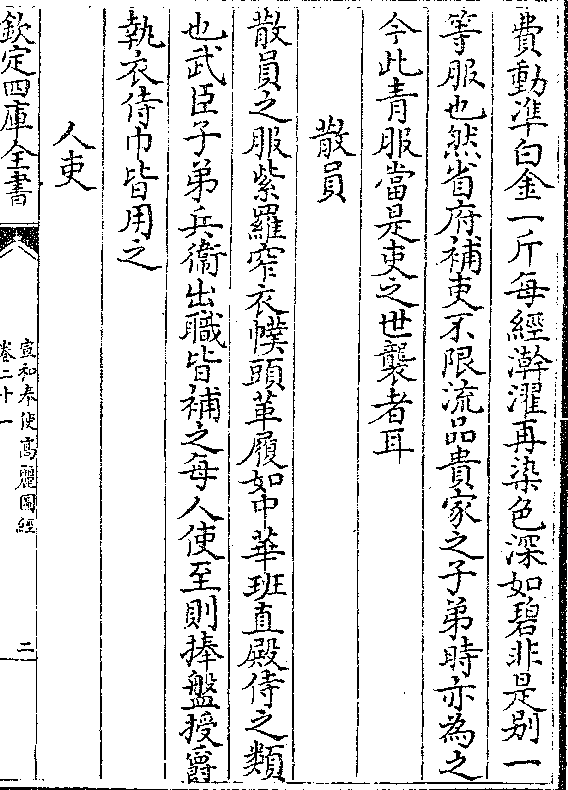 費動準白金一斤每經澣濯再染色深如碧非是别一
等服也然省府補吏不限流品貴家之子弟時亦為之
今此青服當是吏之世襲者耳
散員
散員之服紫羅窄衣幞頭革履如中華班直殿侍之類
也武臣子弟兵衞出職皆補之每人使至則捧盤授爵
執衣侍巾皆用之
人吏
欽定四庫全書
宣和奉使高麗圖經
卷二十一
二